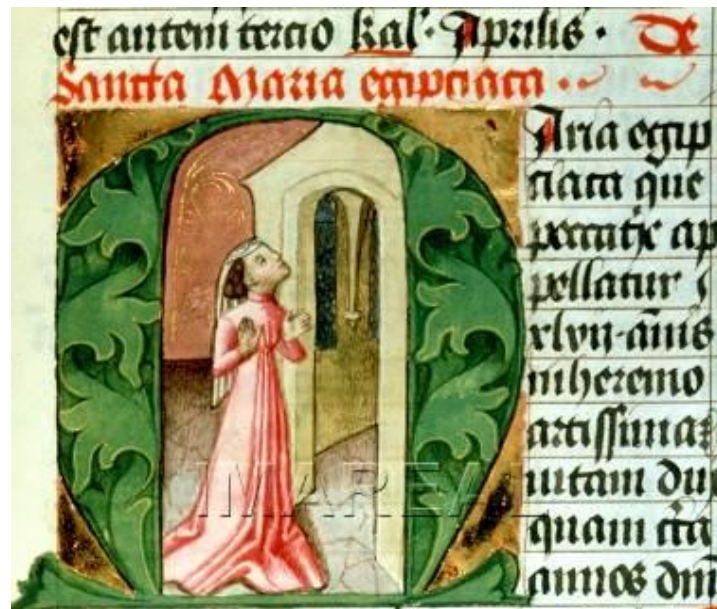 est autem tercio kal'. Aprilis. De
Sancta Maria egiptiaca.
Aria egip
tiaca que
peccatrix ap
pellatur
xlvij. annis
in heremo
artissimaz
uitam du
quam cīca
annos dnī
IMAREAL